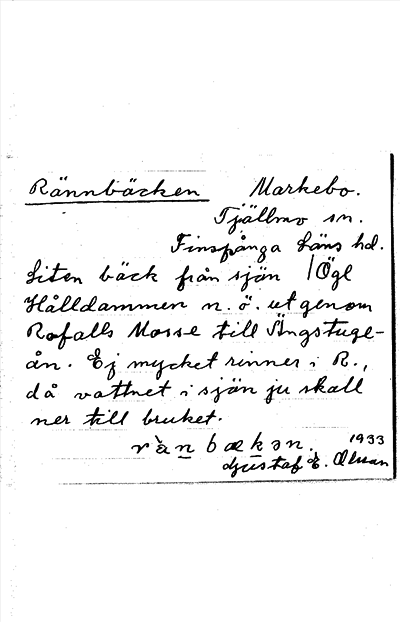 Rännbäcken Markebo.
Tjällmo sn.
Finspånga Läns hd.
Liten bäck från sjön /Ögl
Hålldammen n. ö. ut genom
Rofalls Mosse till Ängstuge-
ån. Ej mycket rinner i R.,
då vattnet i sjön ju skall
ner till bruket.
1933
Gustaf E. Olsson